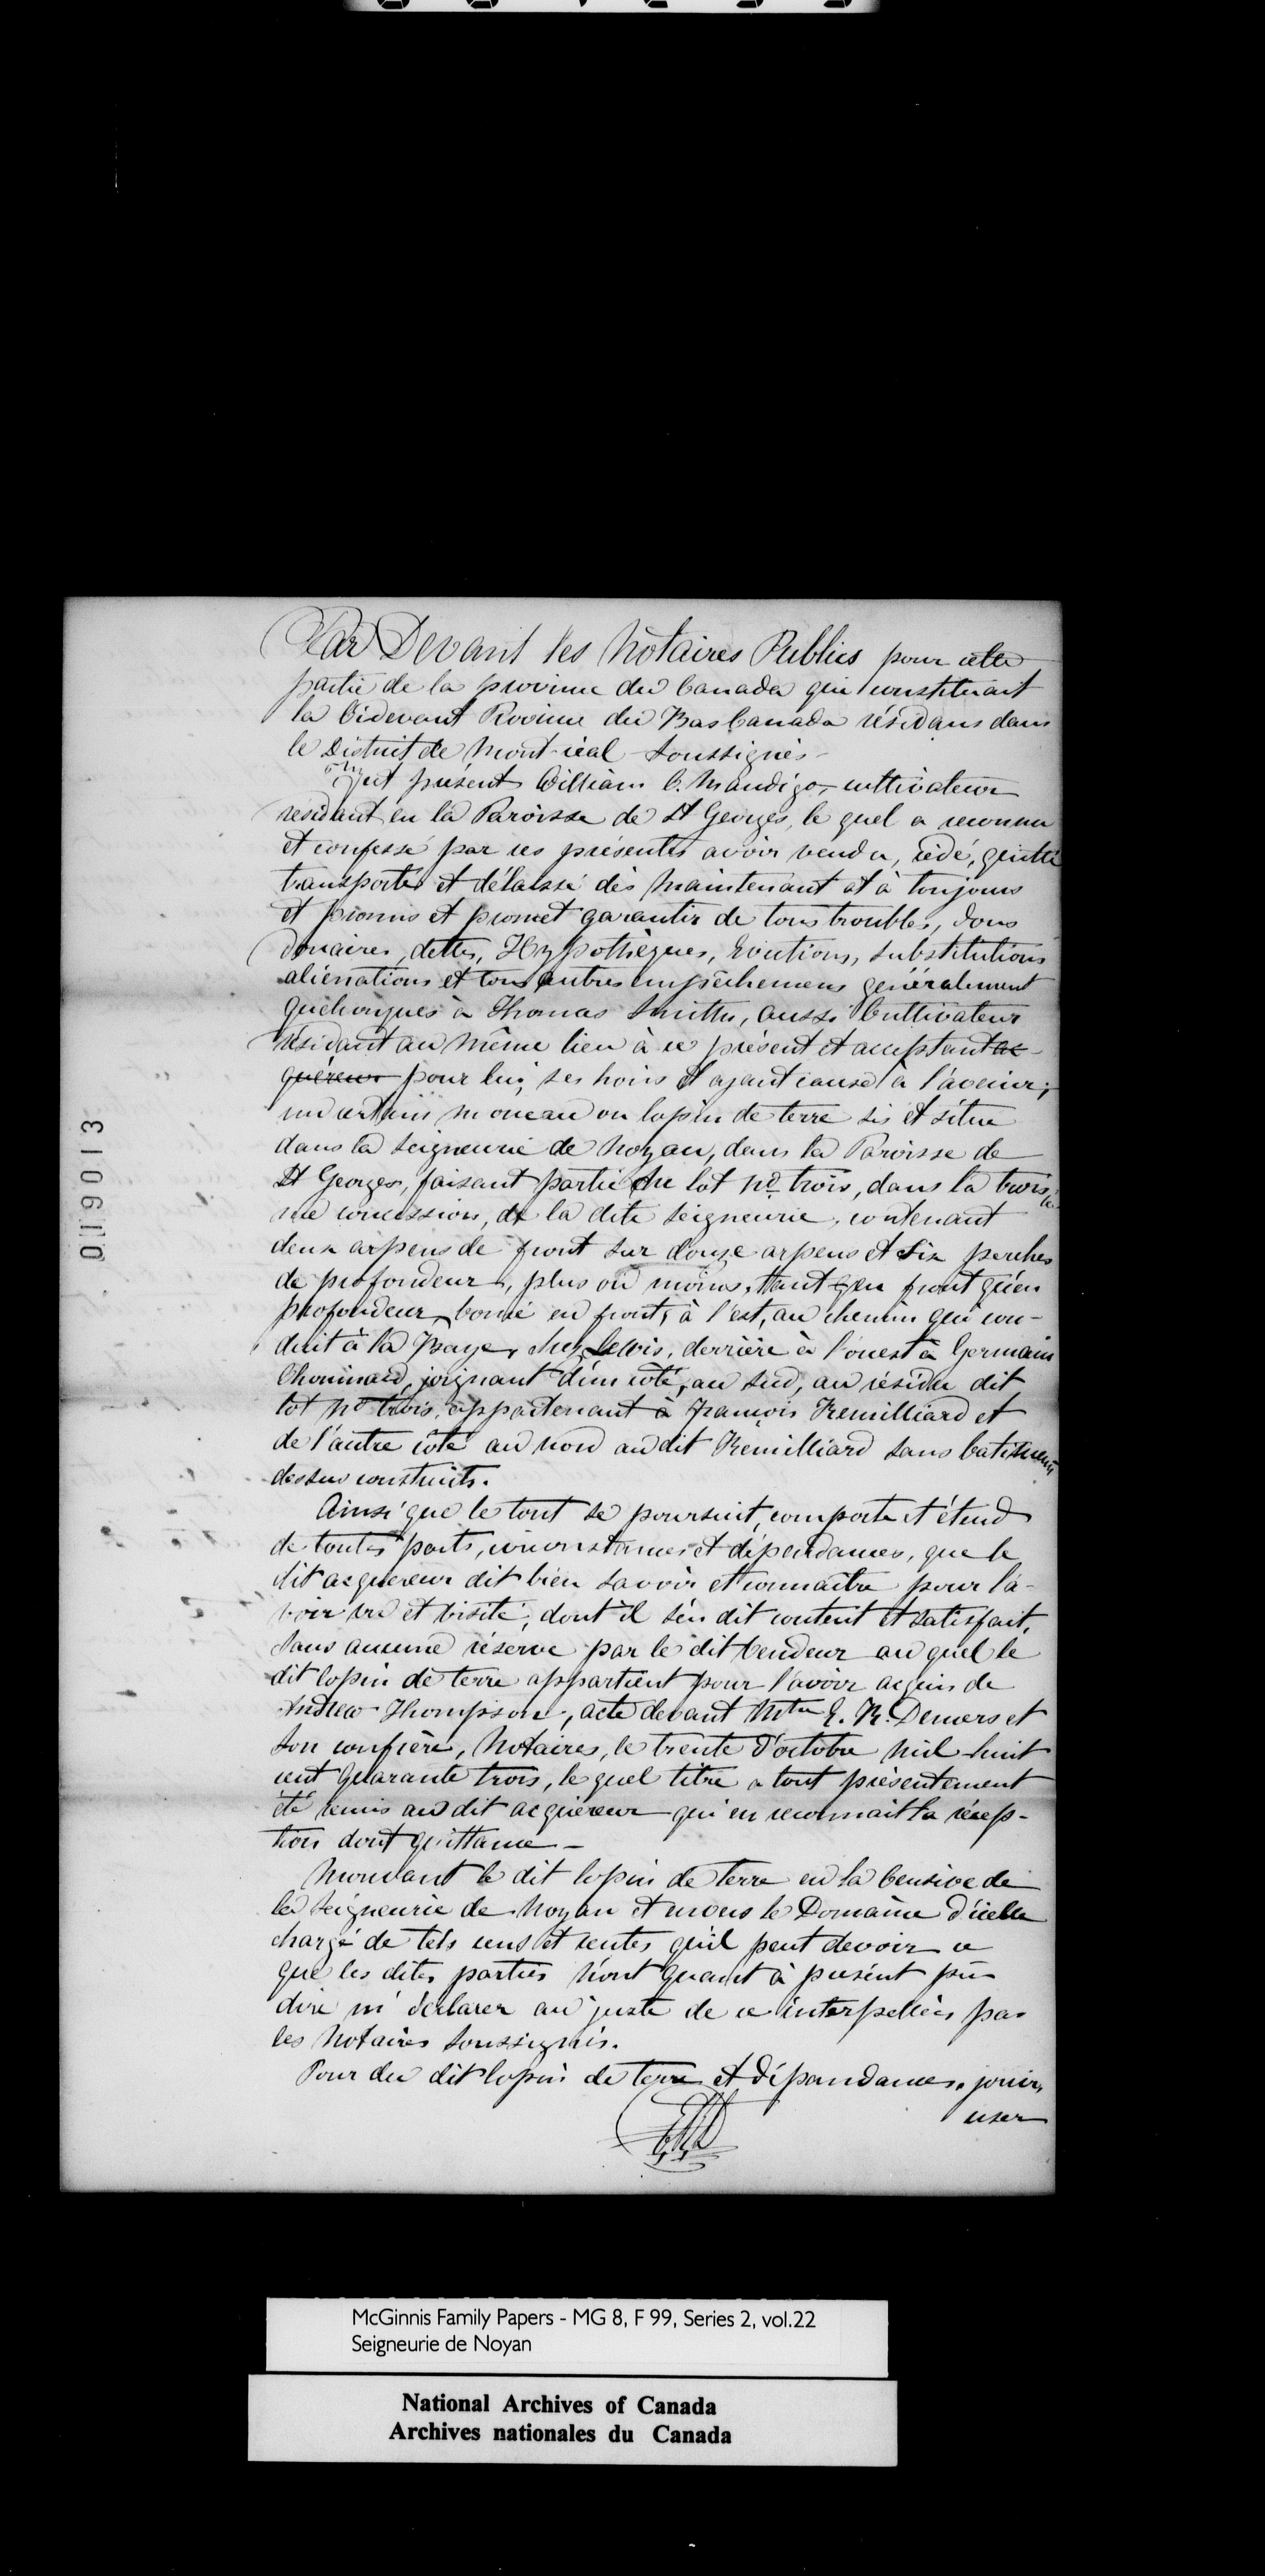 Par Devant les Notaires Publics pour cette
partie de la province du Canada qui constituait
la Cidevant Province du Bas Canada résidans dans
le District de Mont-réal soussignés -
Fut présent William C. Mandigo, cultivateur
residant en la Paroisse de St Georges, le quel a reconnu
et confessé par ces présentes avoir vendu, cédé, quitté
transporté et délaissé dès maintenant et à toujours
et promis et promet garantir de tous troubles, dons
Douaires, dettes, Hypothèques, Evictions, substitutions
aliénations et tous autres empêchemens généralement
quelconques à Thomas Smith, aussi Cultivateur
résidant au même lieu à ce présent et acceptant ac-
quéreur pour lui, ses hoirs et ayant cause à l'avenir;
un certain morceau ou lopin de terre sis et situé
dans la seigneurie de Noyan, dans la Paroisse de
St Georges, faisant partie du lot No trois, dans la troisiè
me concession, de la dite seigneurie, contenant
deux arpens de front sur douze arpens et six perches
de profondeur, plus ou moins, tant en front qu'en
profondeur, borné en front, à l'est, au chemin qui con-
duit à la Baye, chez Lewis, derrière à l'ouest à Germain
Chouinard, joignant d'un côté, au sud, au résidu dit
lot No trois, appartenant à François Remilliard et
de l'autre côté au nord au dit Remilliard sans batisments
dessus construits.
Ainsi que le tout se poursuit, comporte et étend
de toutes parts, circonstances et dépendances, que le
dit acquereur dit bien savoir et connaître pour l'a-
voir vu et visité, dont il s'en dit content et satisfait,
sans aucune réserve par le dit vendeur au quel le
dit lopin de terre appartient pour l'avoir acquis de
Andrew Thompson, acte devant Mtre E. R. Demers et
son confrère, Notaires, le trente d'octobre mil huit
cent quarante trois, le quel titre a tout présentement
été remis au dit acquéreur qui en reconnait la récep-
tion dont quittance -
Mouvant le dit lopin de terre en la Censive de
la Seigneurie de Noyan et envers le Domaine d'icelle
chargé de tels cens et rentes qu'il peut devoir ce
que les dites parties n'ont quant à présent pu
dire ni déclarer au juste de ce interpellées par
les Notaires soussignés.
Pour du dit lopin de terre et dépandances, jouir,
user
ERD
0119013
McGinnis Family Papers - MG 8, F 99, Series 2, vol.22
Seigneurie de Noyan
National Archives of Canada
Archives nationales du Canada